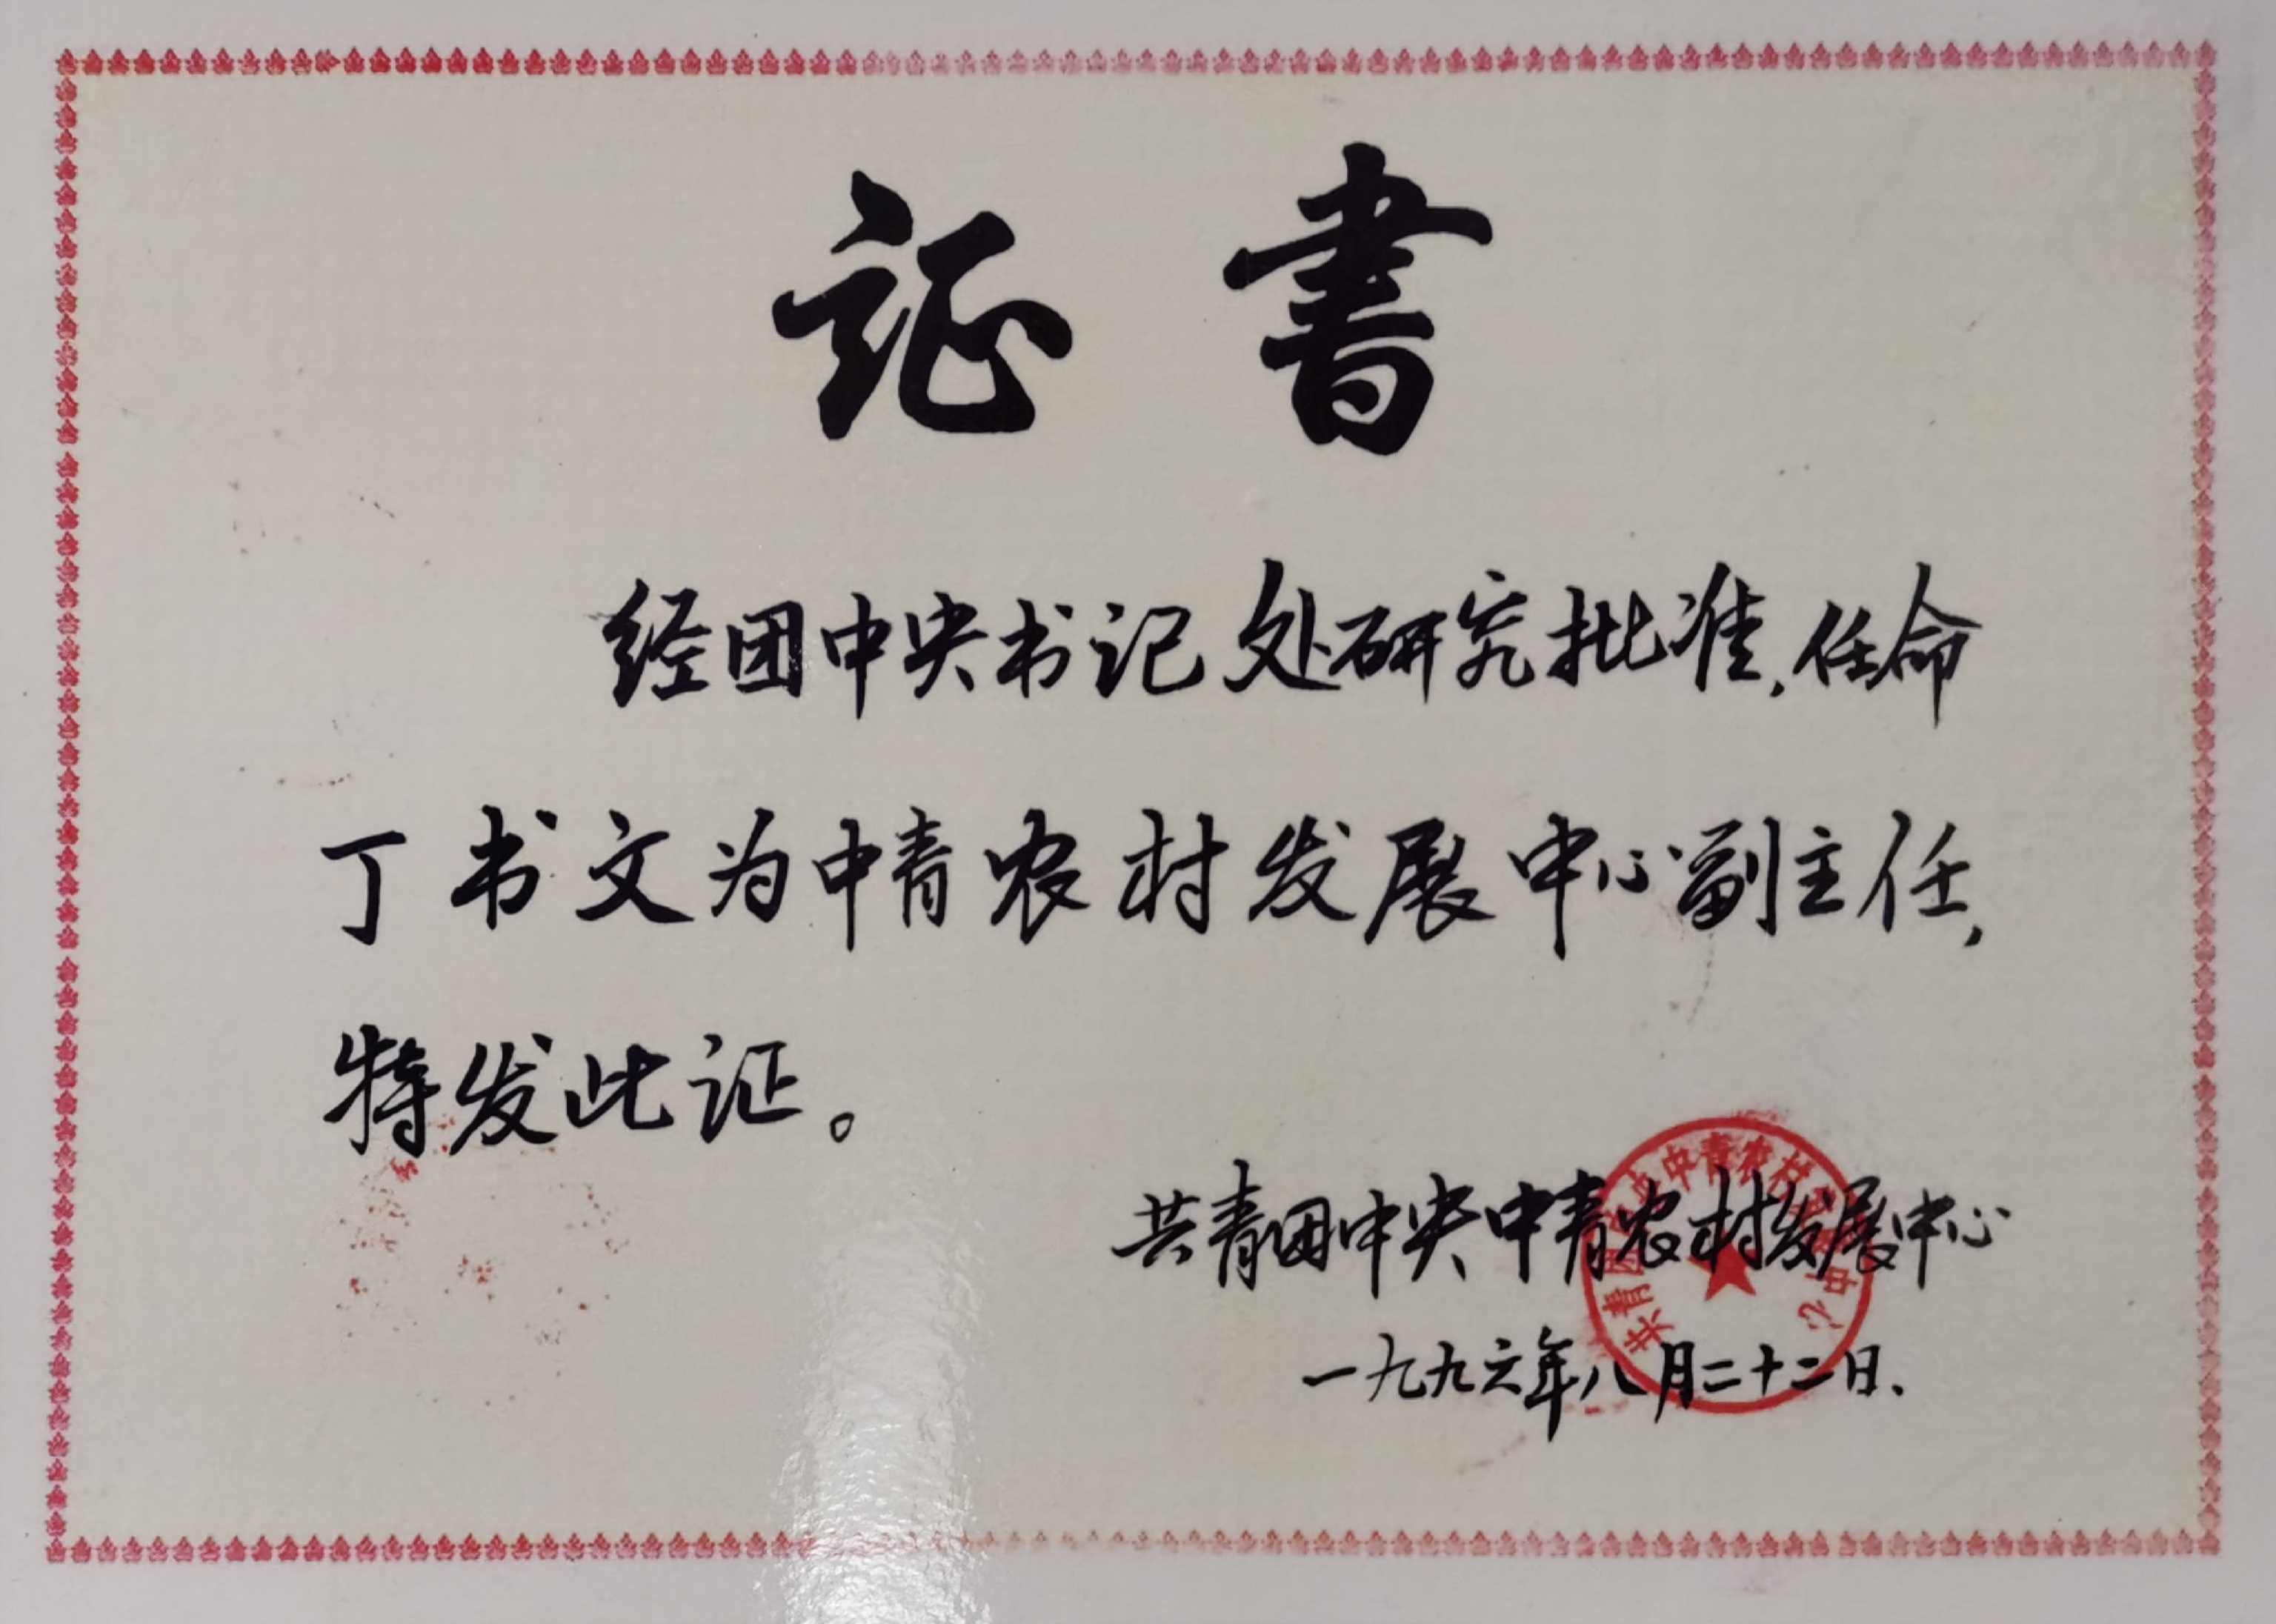 证書
经团中央书记处研究批准，任命
丁书文为中青农村发展中心副主任，
特发此证。
共青团中央中青农村发展中心
一九九六年八月二十二日.
共青团中央中青农村发展中心